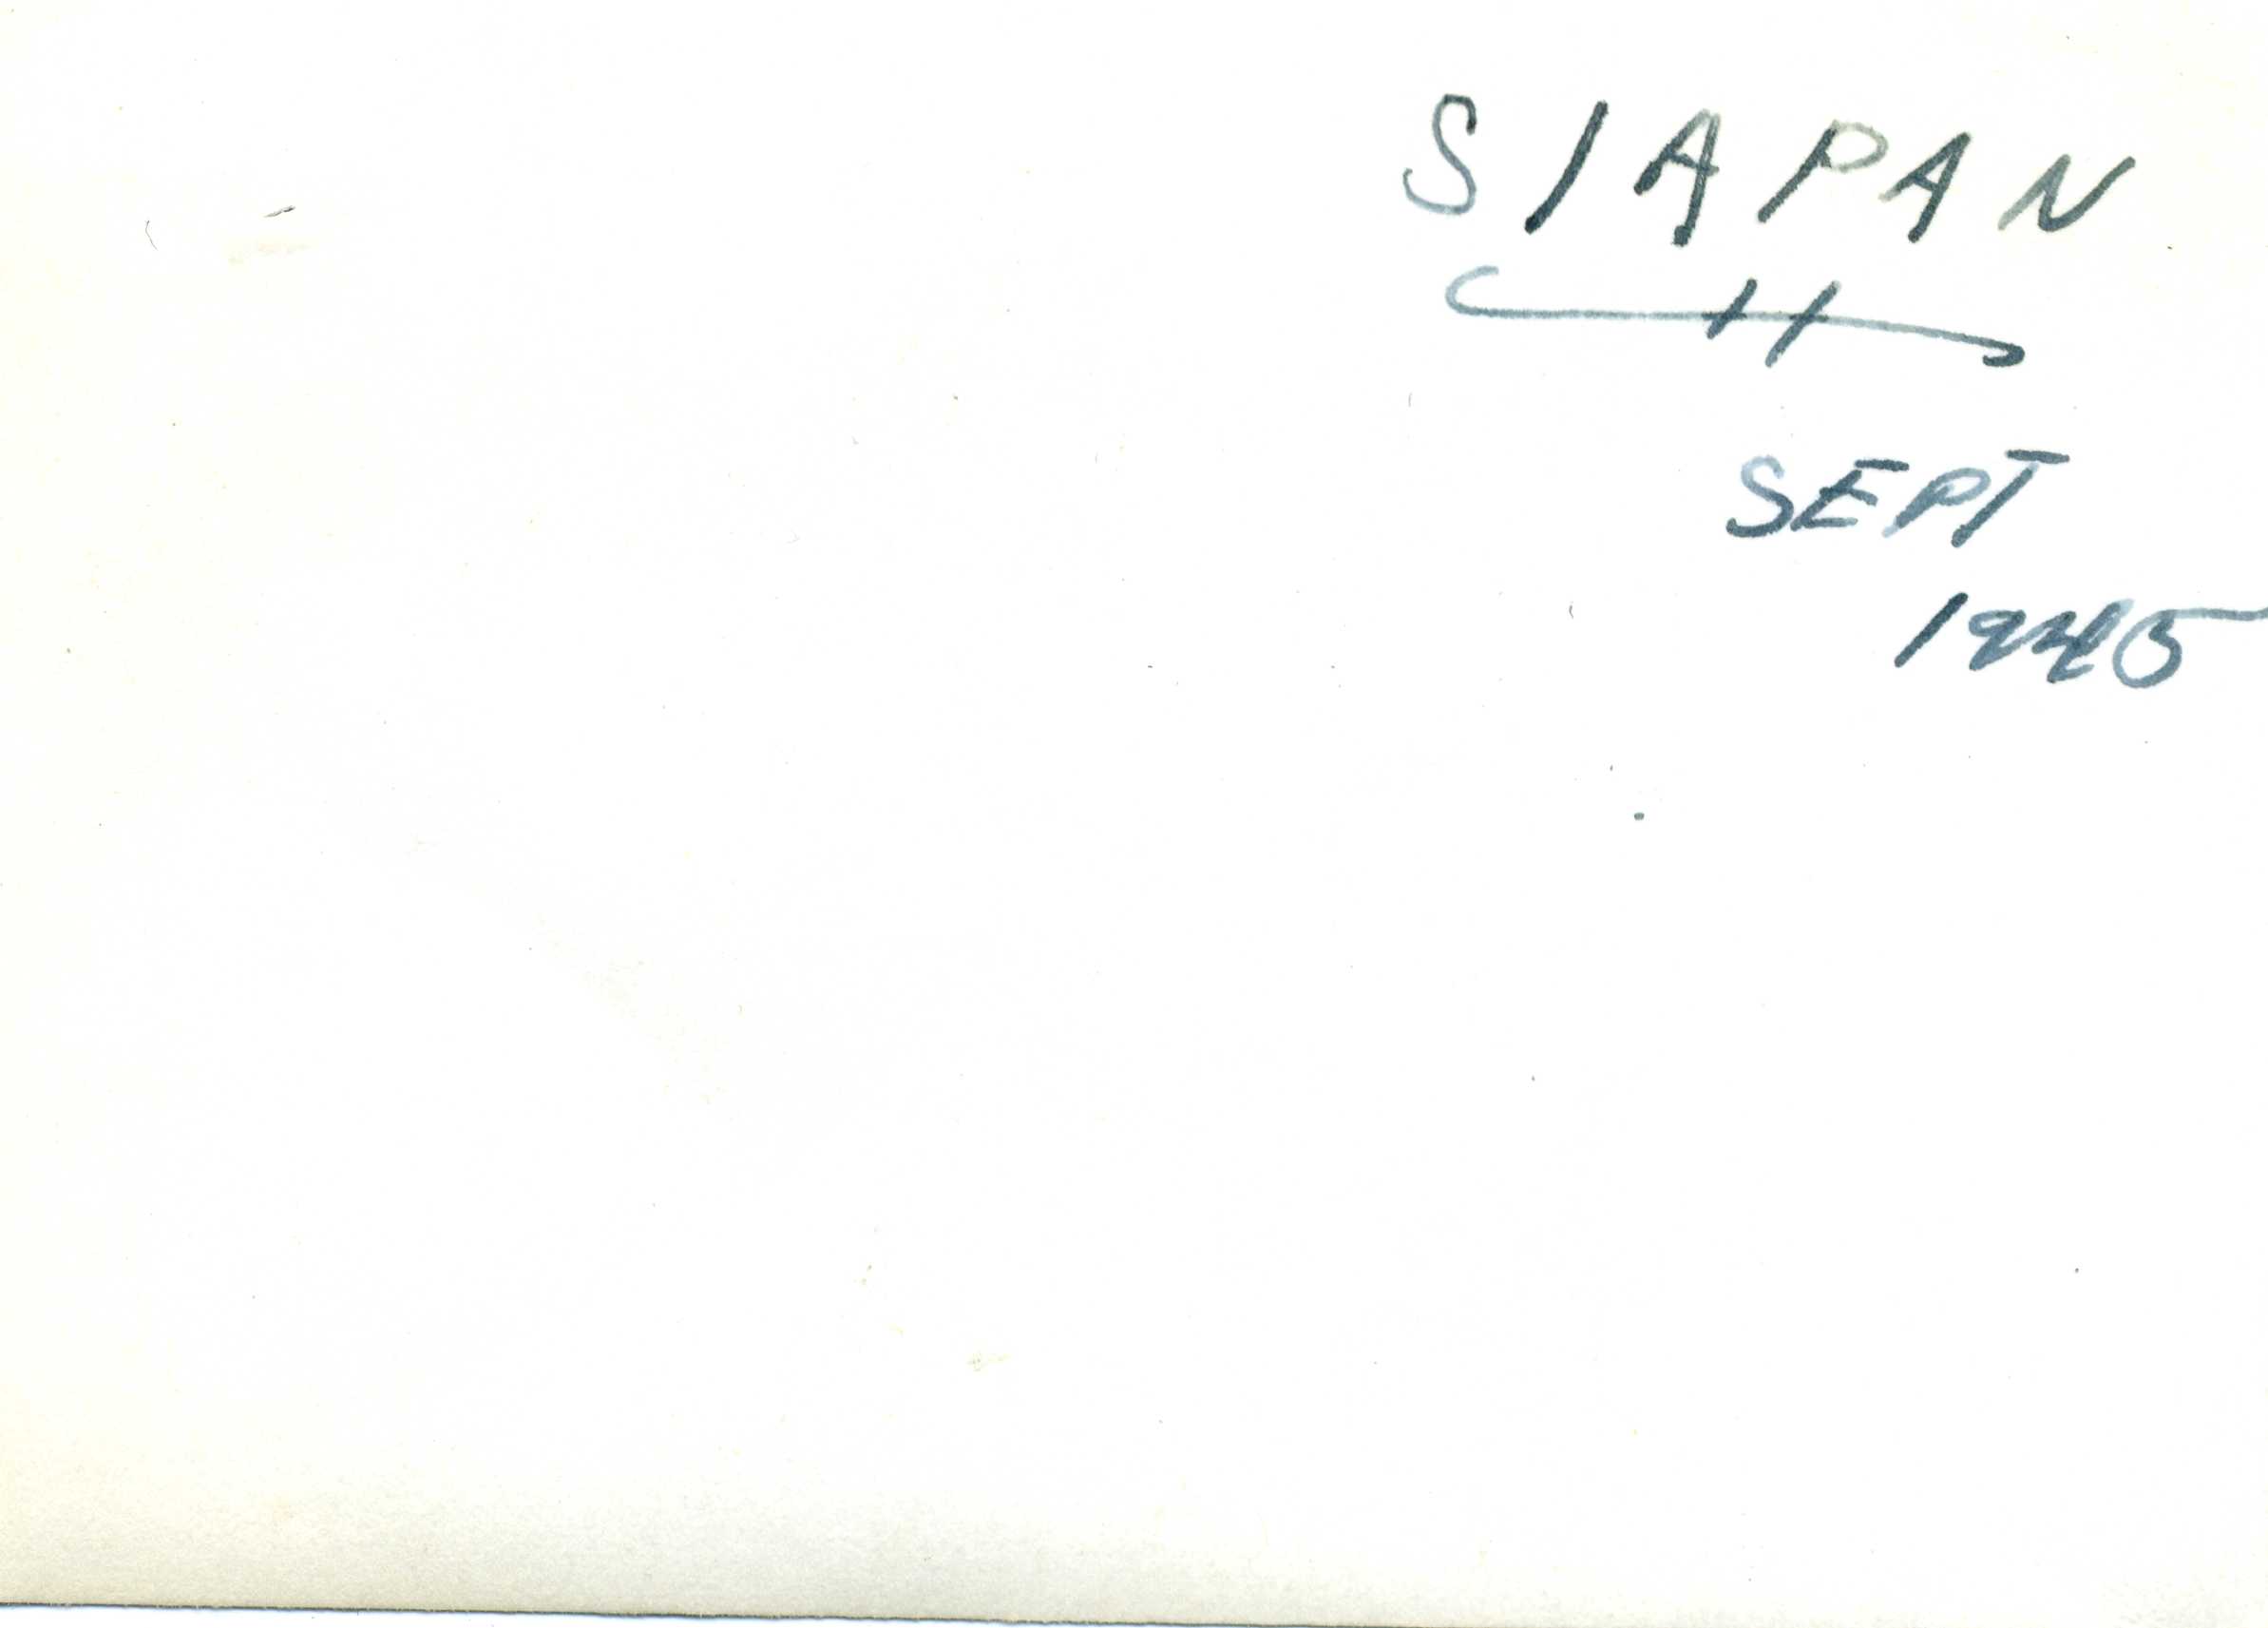 SIAPAN
SEPT
1945